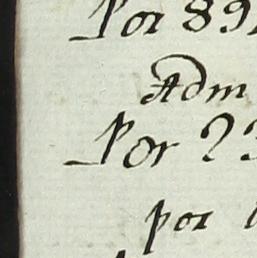 Por 891
Adm
Por 23
por